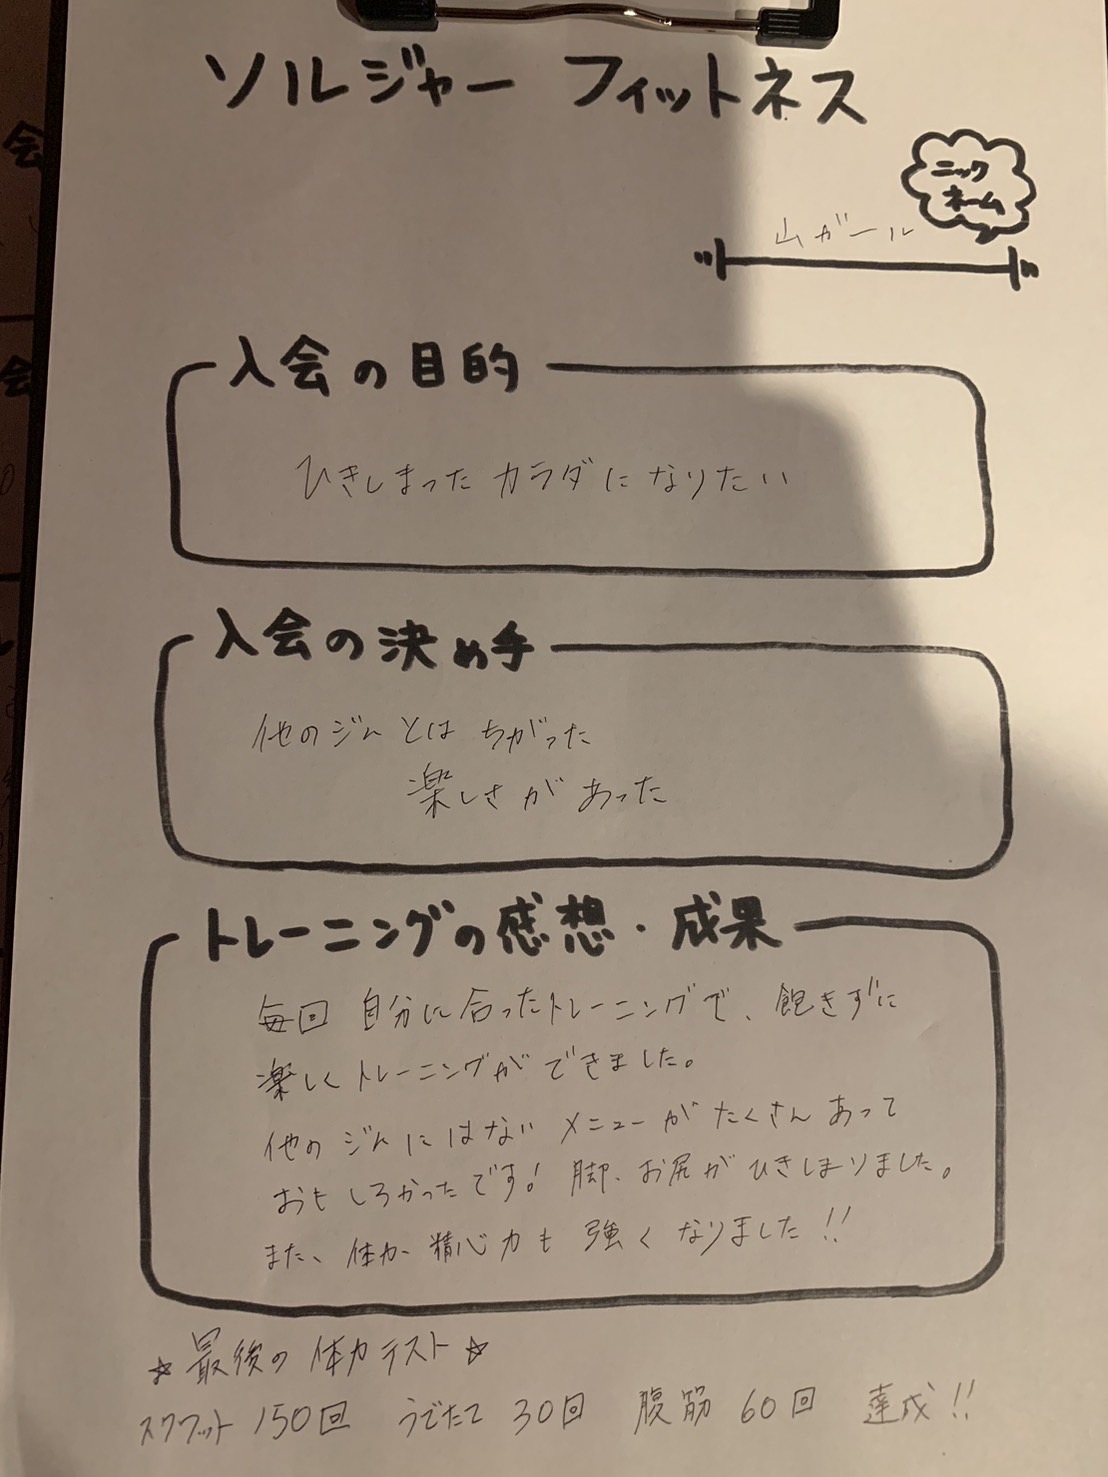 ソルジャー フィットネス
ニック
ネーム
山ガール
入会の目的
ひきしまった カラダになりたい
入会の決め手
他のジムとは ちがった
楽しさがあった
トレーニングの感想・成果
毎回 自分に合ったトレーニングで、飽きずに
楽しくトレーニングができました。
他のジムにはない メニューがたくさんあって
おもしろかったです! 脚、お尻がひきしまりました。
また、体力、精心力も 強くなりました!!
☆最後の体力テスト☆
スクワット 150回 うでたて 30回 腹筋 60回 達成!!
会
会